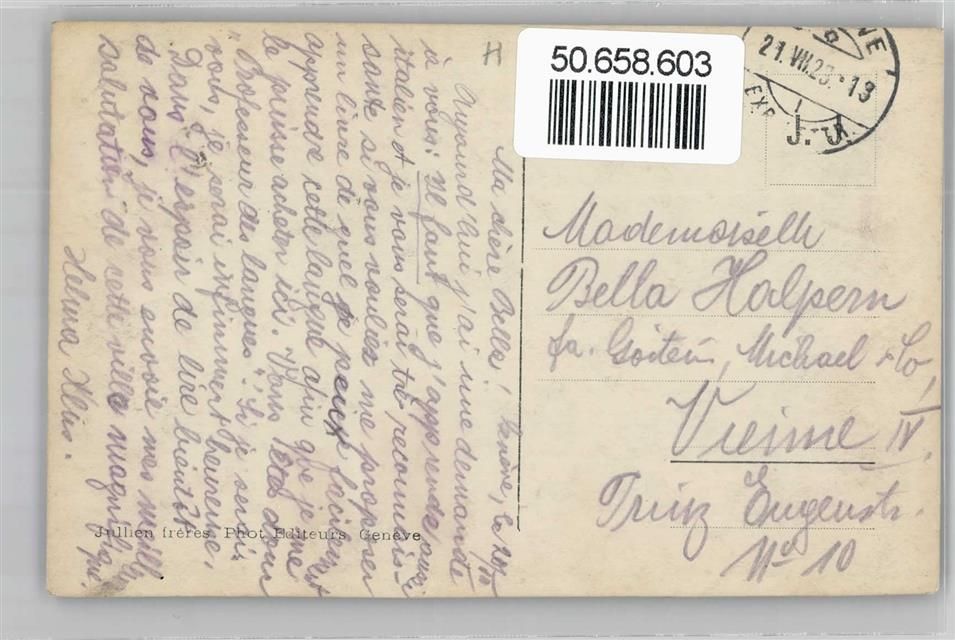 50.658.603
21.VII.23.-13
EXP.
Ma chère Bella! Genève, le 20/VII
Aujourd'hui j'ai une demande
à vous: Il faut que j'apprends aussi
italien et je vous serai très reconnais-
sante si vous vouliez me proposer
un livre de quel je peux facilement
apprendre cette langue afin que je me
le puisse acheter ici. Vous êtes donc
"Professeur des langues". Si je servir
vous, je serai infiniment heureuse,
Dans l'espoir de lire bientôt
de vous, je vous envoie mes meill.
salutation de cette ville magnifique.
Helena
Jullien frères, Phot. Editeurs, Genève
Mademoiselle
Bella Halpern
fa. Goitein, Michael & Co,
Vienne IV.
Prinz Eugenstr.
No 10